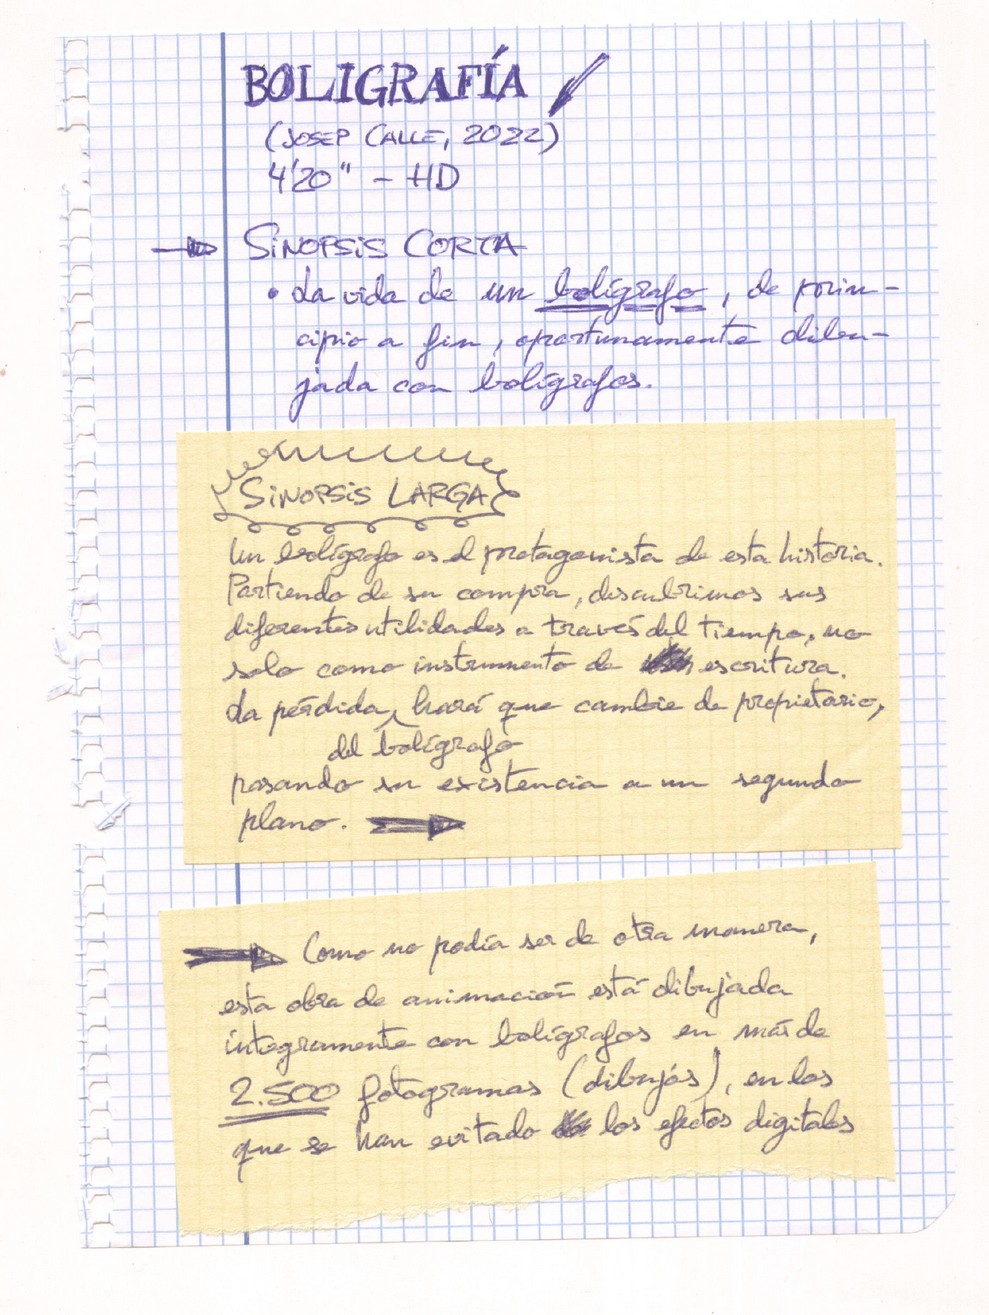 BOLIGRAFÍA
(JOSEP CALLE, 2022)
4'20" - HD
SINOPSIS CORTA
• La vida de un bolígrafo, de prin-
cipio a fin, oportunamente dibu-
jada con bolígrafos.
SINOPSIS LARGA
Un bolígrafo es el protagonista de esta historia.
Partiendo de su compra, descubrimos sus
diferentes utilidades a través del tiempo, no
solo como instrumento de escritura.
La pérdida, hará que cambie de propietario,
del bolígrafo
pasando su existencia a un segundo
plano.
Como no podía ser de otra manera,
esta obra de animación está dibujada
íntegramente con bolígrafos en más de
2.500 fotogramas (dibujos), en los
que se han evitado los efectos digitales